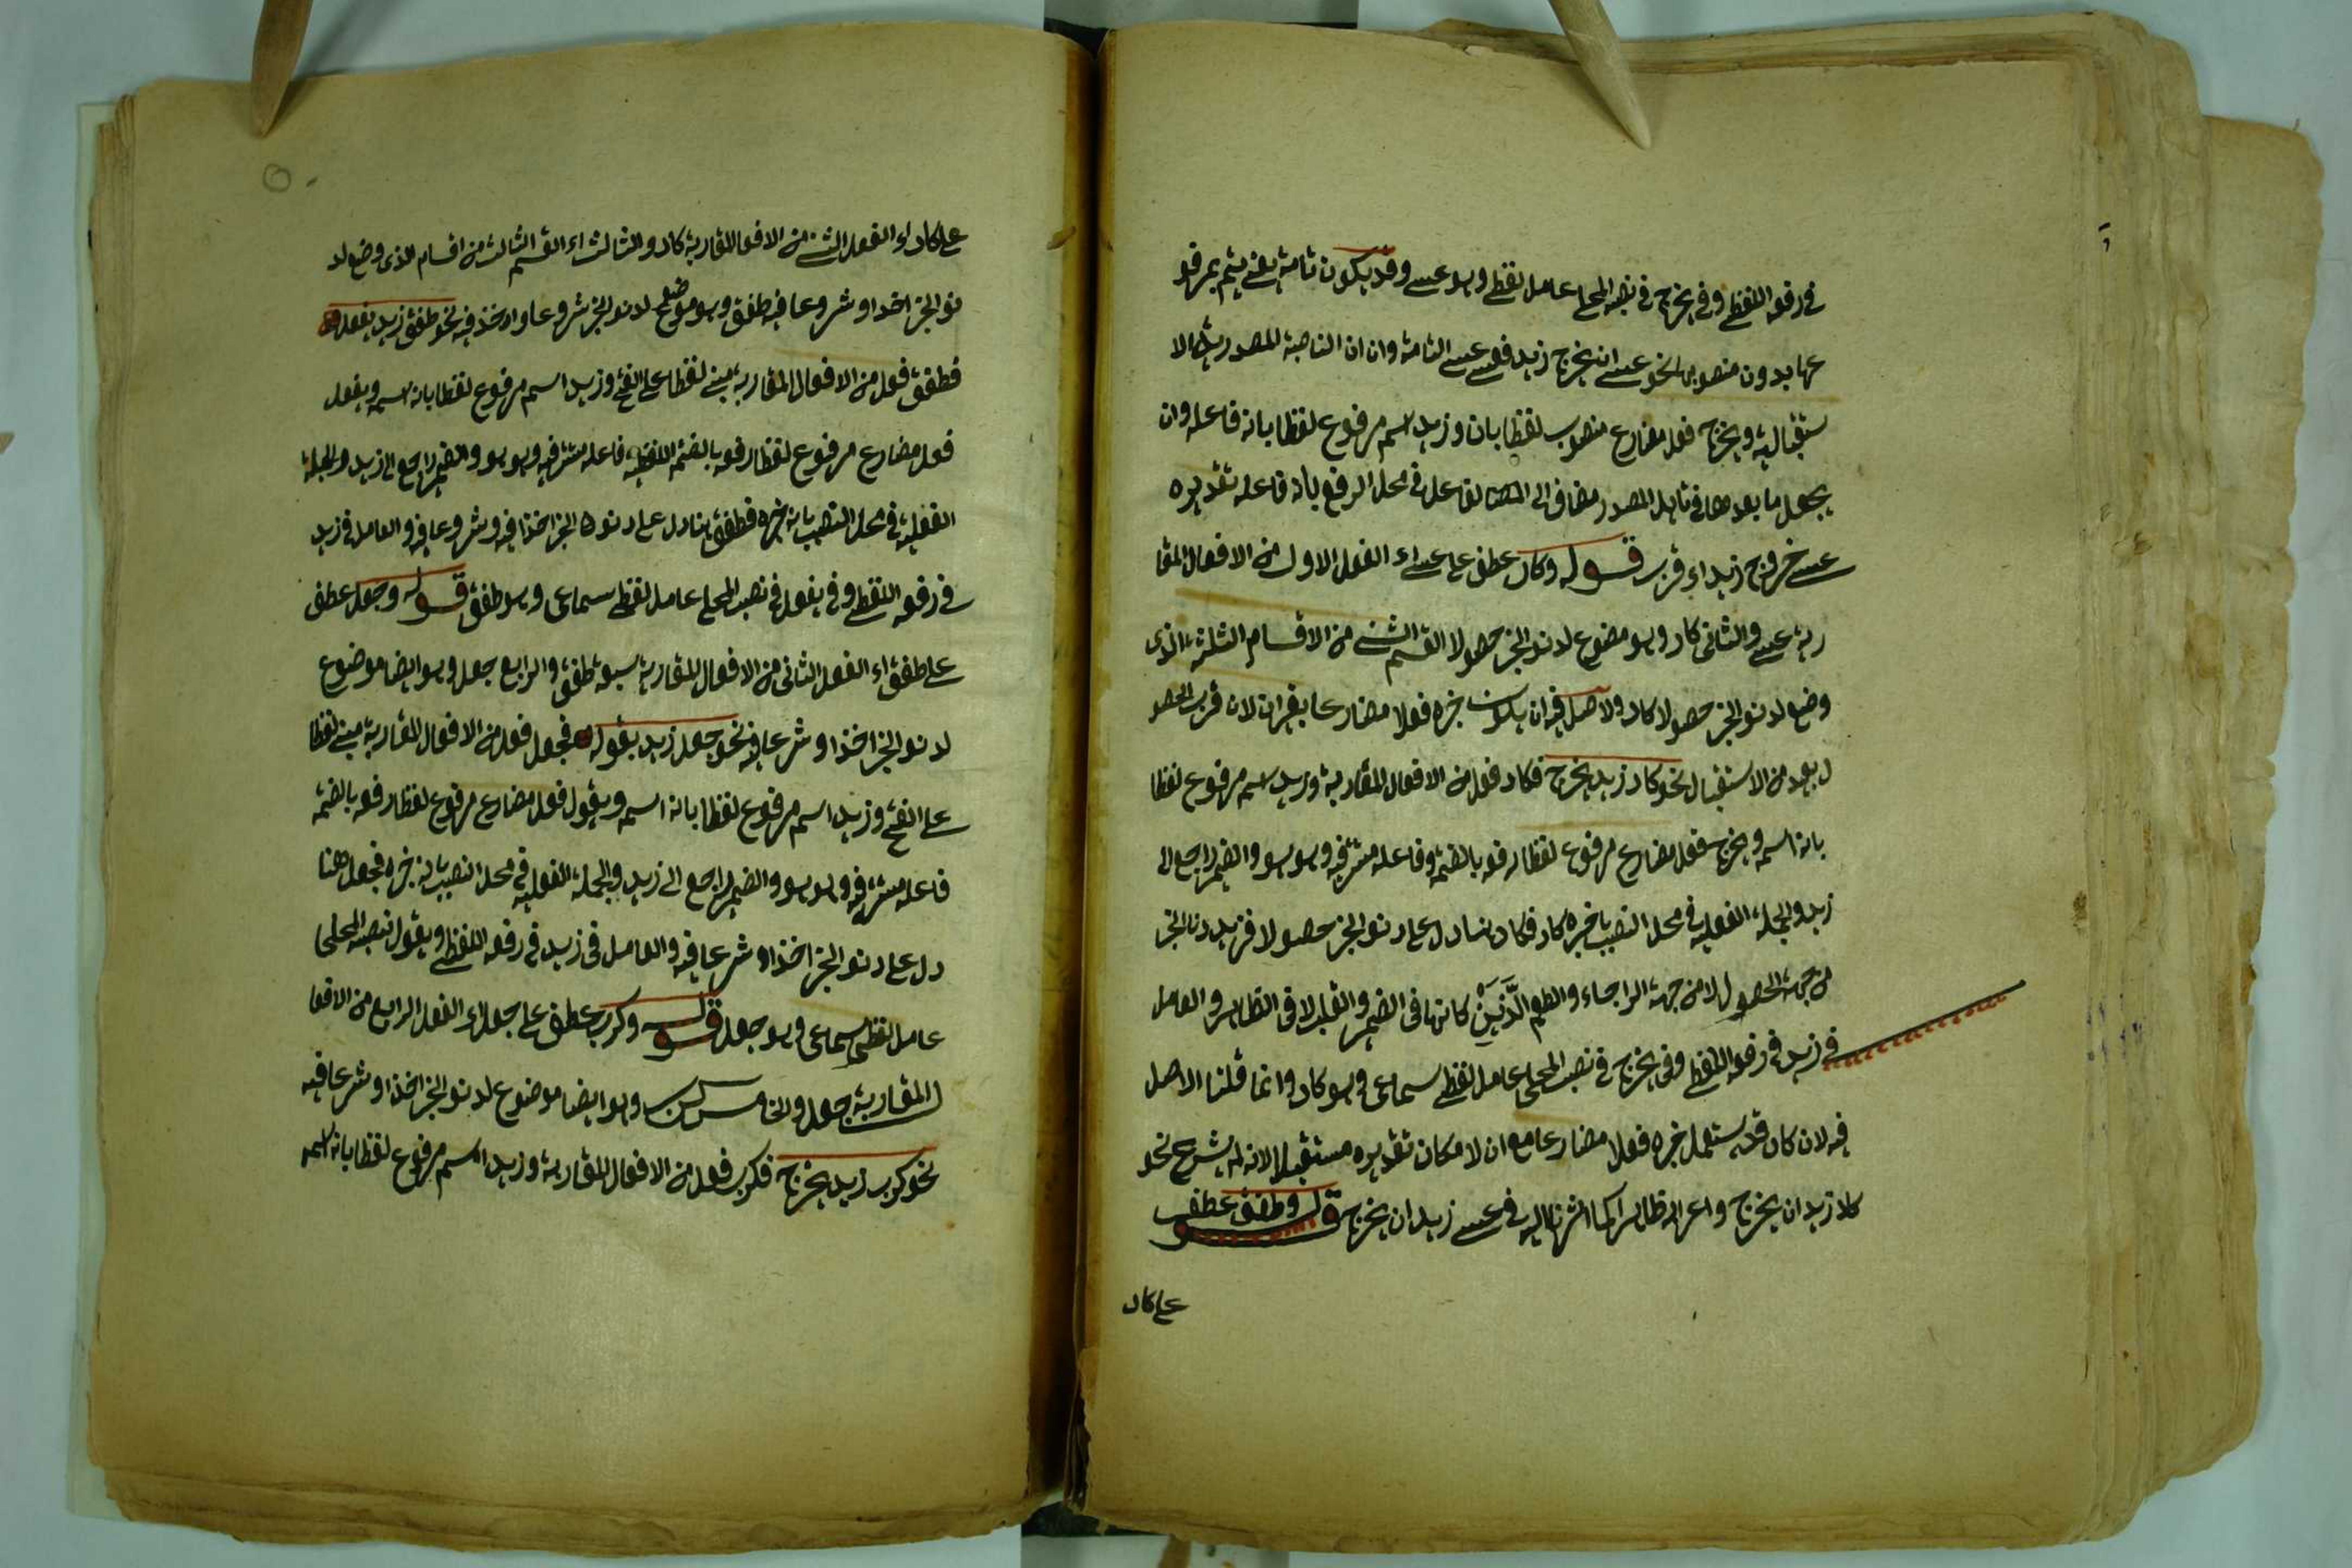 في رفعه اللفظي وفي يخرج في نصبه المحلي عامل لفظي وهو عسى وقد يكون تامة يعني يتم بمرفو
عها بدون منصوبها نحو عسى ان يخرج زيد فعسى عسى التامة وان ان الناصبة المصدرية الا
ستقبالية ويخرج فعل مضارع منصوب لفظا بان وزيد اسم مرفوع لفظا بانه فاعله وان
يجعل ما بعدها في تاويل المصدر مضاف الى الفاعل في محل الرفع بانه فاعله تقديره
عسى خروج زيد اي قرب قوله وكاد عطف على عسى اي الفعل الاول من الافعال المقا
ربة عسى والثاني كاد وهو موضوع لدنو الخبر حصولا القسم الثاني من الاقسام الثلثة الذي
وضع لدنو الخبر حصولا كاد والاصل فيه ان يكون خبره فعلا مضارعا بغير ان لان قرب الحصو
ل بعد من الاستقبال نحو كاد زيد يخرج فكاد فعل من الافعال المقاربة وزيد اسم مرفوع لفظا
بانه اسمه ويخرج فعل مضارع مرفوع لفظا رفعه بالضمة وفاعله مستتر فيه وهو هو والضمير راجع الى
زيد والجملة الفعلية في محل النصب بانه خبره كاد فكاد هنا دل على دنو الخبر حصولا فزيد دنا الخبر
من جهة الحصول لا من جهة الرجاء والطمع الذين كانا في الضمير والقلب لا في الظاهر والعامل
في زيد في رفعه اللفظي وفي يخرج في نصبه المحلي عامل لفظي سماعي وهو كاد وانما قلنا الاصل
فيه لان كان قد يستعمل خبره فعلا مضارعا مع ان لامكان تقديره مستقبلا لانه لم يشرع نحو
كاد زيد ان يخرج واعرابه ظاهر كما اشرنا اليه في عسى زيد ان يخرج قوله وطفق عطف
على كاد
على كاد اي الفعل الثاني من الافعال المقاربة كاد والثالث اي القسم الثالث من اقسام الذي وضع لد
نو الخبر اخذا وشروعا فيه طفق وهو موضوع لدنو الخبر شروعا واخذ فيه نحو طفق زيد يفعل
فطفق فعل من الافعال المقاربة مبني لفظا على الفتح وزيد اسم مرفوع لفظا بانه اسمه ويفعل
فعل مضارع مرفوع لفظا رفعه بالضمة اللفظية فاعله مستتر فيه وهو هو والضمير راجع الى زيد والجملة
الفعلية في محل النصب بانه خبره فطفق هنا دل على دنو الخبر اخذا فيه وشروعا فيه والعامل في زيد
في رفعه اللفظي وفي يفعل في نصبه المحلي عامل لفظي سماعي وهو طفق قوله وجعل عطف
على طفق اي الفعل الثاني من الافعال المقاربة سبعة طفق والرابع جعل وهو ايضا موضوع
لدنو الخبر اخذا وشرعا فيه نحو جعل زيد يقوله فجعل فعل من الافعال المقاربة مبني لفظا
على الفتح وزيد اسم مرفوع لفظا بانه اسمه ويقول فعل مضارع مرفوع لفظا رفعه بالضمة
فاعله مستتر فيه وهو هو والضمير راجع الى زيد والجملة الفعلية في محل النصب بانه خبره فجعل هنا
دل على دنو الخبر اخذا وشرعا فيه والعامل في زيد في رفعه اللفظي ويقول نصبه المحلي
عامل لفظي سماعي وهو جعل قوله وكرب عطف على جعل اي الفعل الرابع من الافعا
ل المقاربة جعل والخامس كرب وهو ايضا موضوع لدنو الخبر اخذا وشرعا فيه
نحو كرب زيد يخرج فكرب فعل من الافعال المقاربة وزيد اسم مرفوع لفظا بانه اسمه